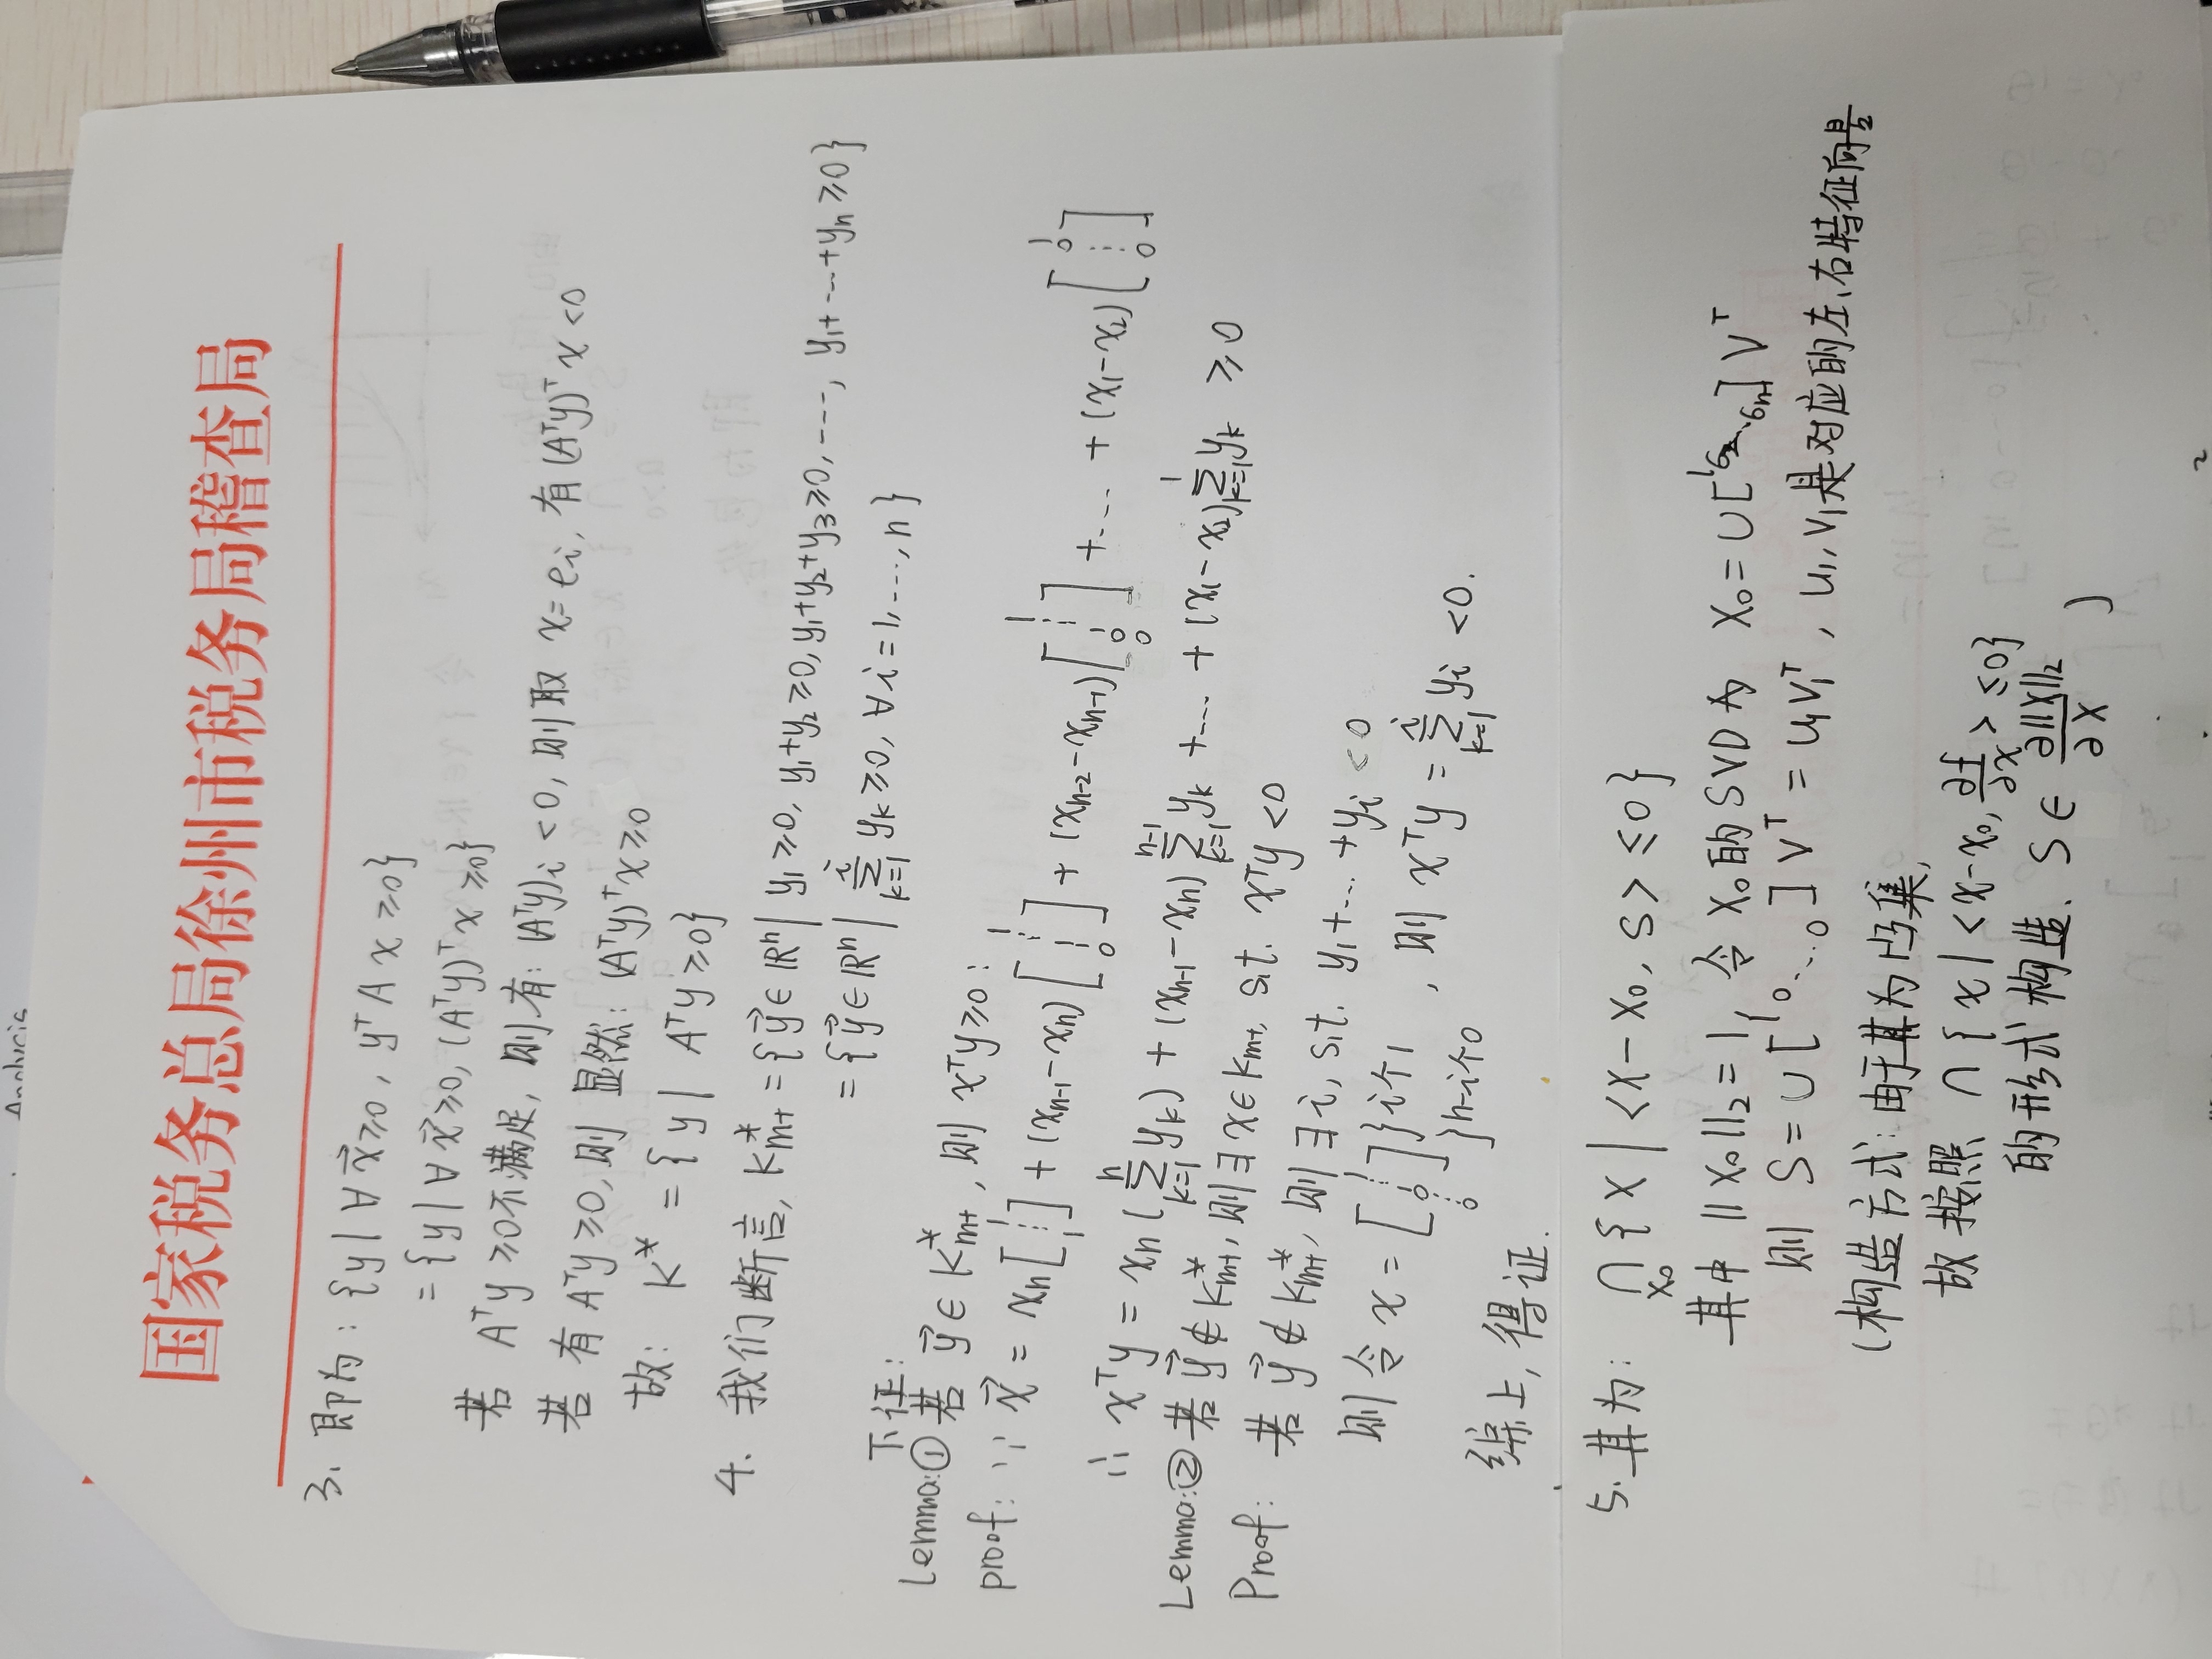 Analysis
国家税务总局徐州市税务局稽查局
3. 即为: {y | ∀x⃗≥0, yᵀAx≥0}
= {y | ∀x⃗≥0, (Aᵀy)ᵀx≥0}
若 Aᵀy≥0不满足, 则有: (Aᵀy)ᵢ<0, 则取 x=eᵢ, 有(Aᵀy)ᵀx<0
若有Aᵀy≥0, 则 显然: (Aᵀy)ᵀx≥0
故: K* = {y | Aᵀy≥0}
4. 我们断言, K*ₘ₊ = {y⃗∈ℝⁿ | y₁≥0, y₁+y₂≥0, y₁+y₂+y₃≥0, ----, y₁+---+yₙ≥0}
= {y⃗∈ℝⁿ | Σ_{k=1}^{i} yₖ≥0, ∀i=1,...,n}
下证:
Lemma:① 若 y⃗∈K*ₘ₊, 则 xᵀy≥0:
proof: ∵ x⃗ = xₙ[1 ⋮ 1] + (xₙ₋₁-xₙ)[1 ⋮ 1 0] + (xₙ₋₂-xₙ₋₁)[1 ⋮ 1 0 0] +.... + (x₁-x₂)[1 0 ⋮ 0]
∴ xᵀy = xₙ(Σ_{k=1}^{n} yₖ) + (xₙ₋₁-xₙ)Σ_{k=1}^{n-1} yₖ +.... + (x₁-x₂)Σ_{k=1}^{1} yₖ ≥0
Lemma:② 若 y⃗∉K*ₘ₊, 则∃x∈Kₘ₊, s.t. xᵀy<0
Proof: 若 y⃗∉K*ₘ₊, 则∃i, s.t. y₁+...+yᵢ<0
则令 x = [1 ⋮ 0 ⋮ 0] }i个1 }n-i个0 , 则 xᵀy = Σ_{k=1}^{i} yᵢ <0.
综上, 得证.
5. 其为: ∩_{X₀} {X | <X-X₀, S> ≤0}
其中 ||X₀||₂=1, 令 X₀的SVD为 X₀=U[1 σ₂ ⋱ σₙ]Vᵀ
则 S=U[1 0 ⋱ 0]Vᵀ = u₁v₁ᵀ, u₁,v₁是对应的左、右特征向量
(构造方式: 由于其为凸集,
故按照 ∩{x | <x-x₀, ∂f/∂x> ≤0}
的形式构造. S∈ ∂||X||₂/∂X )